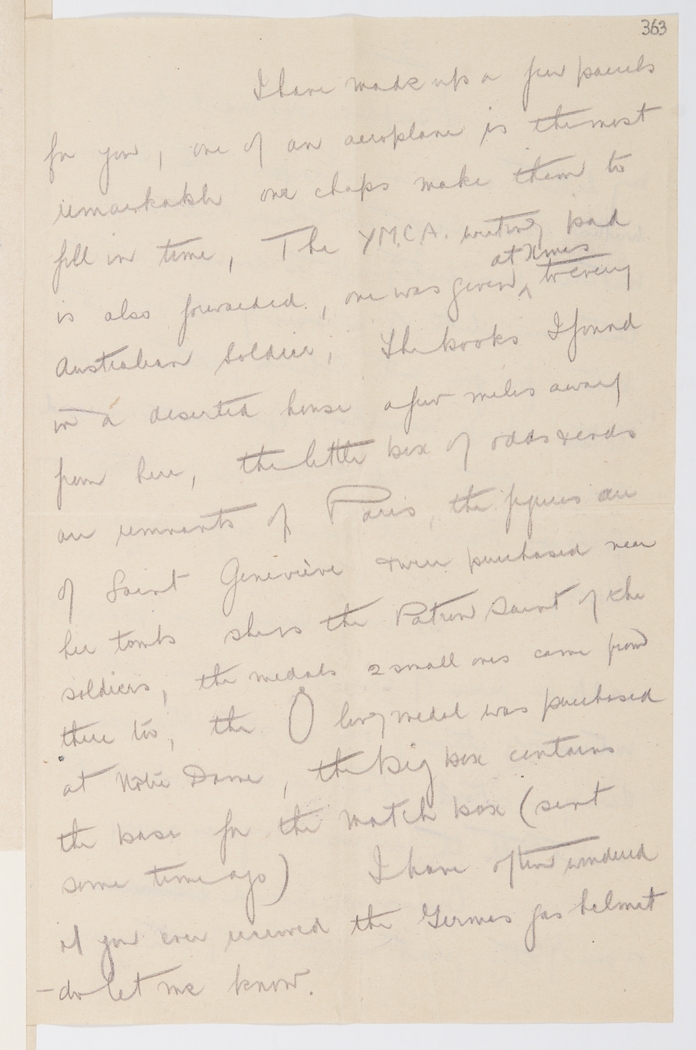 363
I have made up a few parcels
for you, one of an aeroplane is the most
remarkable one chaps make them to
fill in time, The Y.M.C.A. writing pad
is also forwarded, one was given at Xmas to every
Australian Soldier, The books I found
in a deserted house a few miles away
from here, the little box of odds & ends
are remnants of Paris, the figures are
of Saint Genevieve & were purchased near
her tomb she is the Patron Saint of the
soldiers, the medals 2 small ones came from
there too, the O long medal was purchased
at Notre Dame, the big box contains
the base for the match box (sent
some time ago) I have often wondered
if you ever received the German gas helmet
- do let me know.